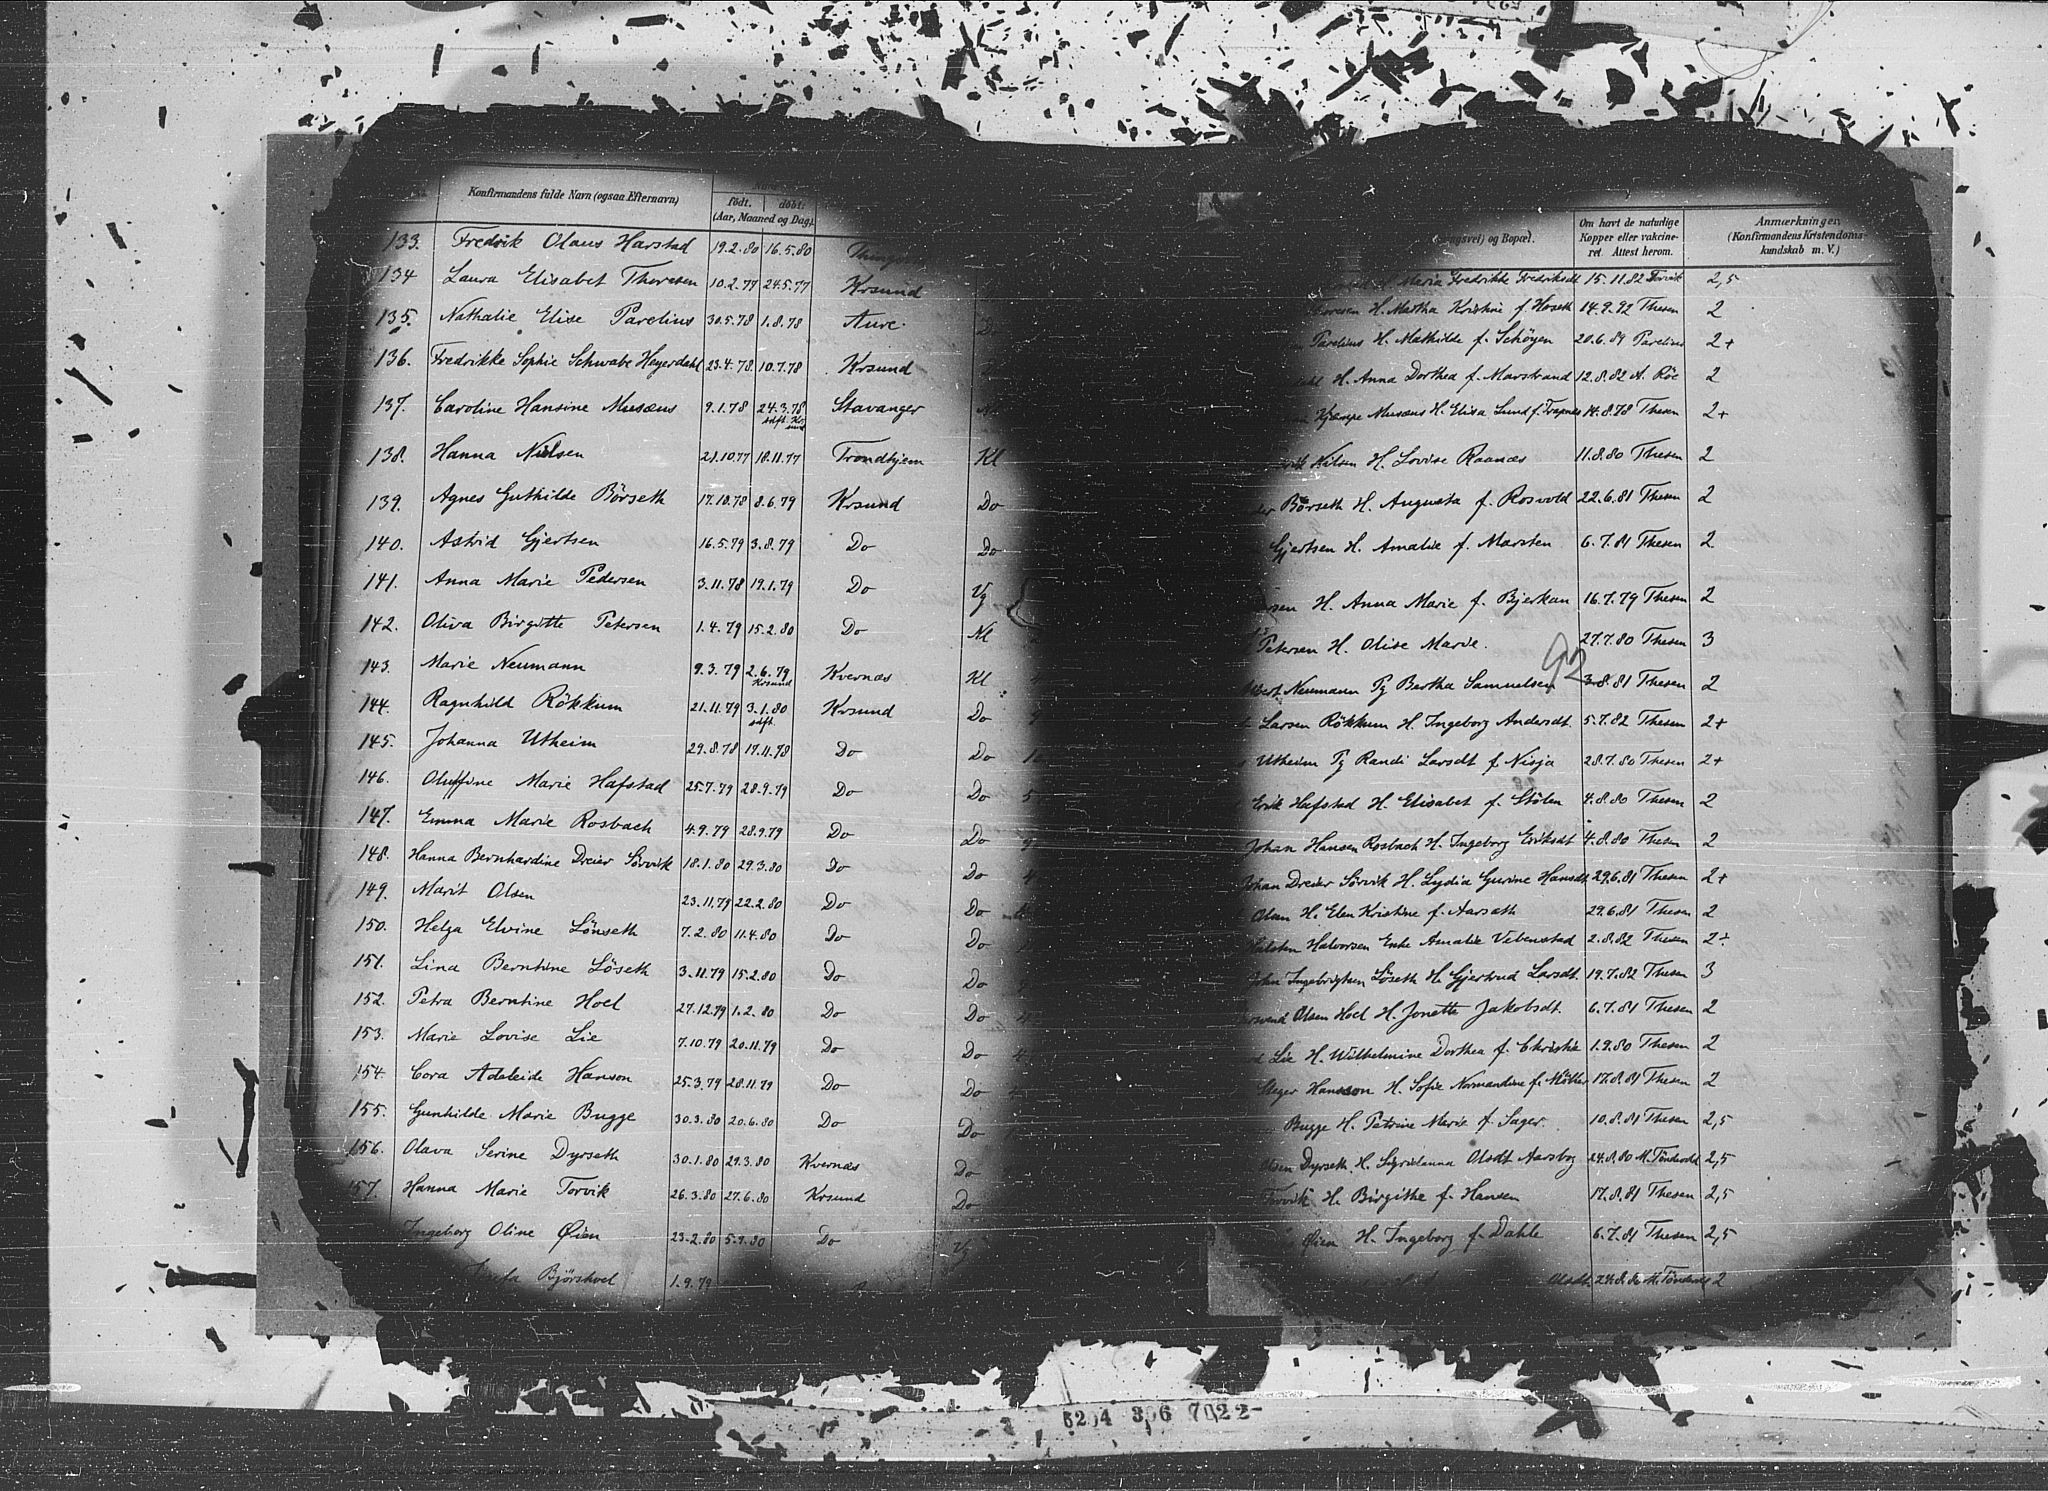 Konfirmandens fulde Navn (ogsaa Efternavn)
födt. döbt.
(Aar, Maaned og Dag).
133. Fredrik Olaus Harstad 19.2.80 16.5.80
134 Laura Elisabet Thoresen 10.2.77 24.5.77 Krsund
135. Nathalie Elise Parelius 30.5.78 1.8.78 Aure.
136. Fredrikke Sophie Schwabe Heyerdahl 23.4.78 10.7.78 Krsund
137. Caroline Hansine Musæus 9.1.78 24.3.78 Stavanger
138. Hanna Nilsen 21.10.77 18.11.77 Trondhjem Kl
139. Agnes Guthilde Börseth 17.10.78 8.6.79 Krsund Do
140. Astrid Gjertsen 16.5.79 3.8.79 Do Do
141. Anna Marie Pedersen 3.11.78 19.1.79 Do Vg
142. Oliva Birgitte Petersen 1.4.79 15.2.80 Do Nl
143. Marie Neumann 9.3.79 2.6.79 Krsund Kvernæs Kl
144. Ragnhild Rökkum 21.11.79 3.1.80 Krsund Do
145. Johanna Utheim 29.8.78 19.11.78 Do Do
146. Oluffine Marie Hafstad 25.7.79 28.9.79 Do Do
147. Emma Marie Rosbach 4.9.79 28.9.79 Do Do
148. Hanna Bernhardine Dreier Sörvik 18.1.80 29.3.80 Do Do
149. Marit Olsen 23.11.79 22.2.80 Do Do
150. Helga Elvine Lönseth 7.2.80 11.4.80 Do Do
151. Lina Berntine Löseth 3.11.79 15.2.80 Do Do
152. Petra Berntine Hoel 27.12.79 1.2.80 Do Do
153. Marie Lovise Lie 7.10.79 20.11.79 Do Do
154. Cora Adeleide Hanson 25.3.79 28.11.79 Do Do
155. Gunhilde Marie Bugge 30.3.80 20.6.80 Do Do
156. Olava Serine Dyrseth 30.1.80 29.3.80 Kvernæs Do
157. Hanna Marie Torvik 26.3.80 27.6.80 Krsund Do
Ingeborg Oline Øien 23.2.80 5.9.80 Do Vg
Bjørshol 1.9.79
og Bopæl.
Om havt de naturlige
Kopper eller vakcine-
ret. Attest herom.
Anmærkninger
(Konfirmandens Kristendoms-
kundskab m. V.)
H. Maria Fredrikke Fredriksdt 15.11.82 Torvik 2,5
Thoresen H. Martha Kristine f. Hoseth 14.9.92 Thesen 2
Parelius H. Mathilde f. Schöyen 20.6.89 Parelius 2+
H. Anna Dorthea f. Marstrand 12.8.82 A. Röe 2
Kjempe Musæus H. Elisa Lund f. Trapnes 14.8.78 Thesen 2+
Nilsen H. Lovise Raanæs 11.8.80 Thesen 2
Börseth H. Augusta f. Rosvold 22.6.81 Thesen 2
Gjertsen H. Amalie f. Marsten 6.7.81 Thesen 2
H. Anna Marie f. Bjerkan 16.7.79 Thesen 2
Petersen H. Olise Marie. 27.7.80 Thesen 3
92
Neumann Pg Bertha Samuelsen 3.8.81 Thesen 2
Larsen Rökkum H. Ingeborg Andersdt. 5.7.82 Thesen 2+
Utheim Pg Randi Larsdt f. Nisja 28.7.80 Thesen 2+
Erik Hafstad H. Elisabet f. Stölen 4.8.80 Thesen 2
Johan Hansen Rosbach H. Ingeborg Eriksdt 4.8.80 Thesen 2
Johan Dreier Sörvik H. Lydia Gurine Hansdt 29.6.81 Thesen 2+
Olsen H. Elen Kristine f. Aarsæth 29.6.81 Thesen 2
Halvorsen Enke Amalie Vebenstad 2.8.82 Thesen 2+
John Ingebrigtsen Löseth H. Gjertrud Larsdt. 19.7.82 Thesen 3
Olsen Hoel H. Jonette Jakobsdt. 6.7.81 Thesen 2
Lie H. Wilhelmine Dorthea f. Christie 1.9.80 Thesen 2
Hansson H. Sofie Normandine f. Möller 17.8.81 Thesen 2
Bugge H. Petrine Marie f. Sager. 10.8.81 Thesen 2,5
Olsen Dyrseth H. Olsdt Aarsbog 24.8.80 M. Tönderdal 2,5
Torvik H. Birgithe f. Hansen 17.8.81 Thesen 2,5
Øien H. Ingeborg f. Dahle 6.7.81 Thesen 2,5
Olsdt. 24.8.80 M. Tönderdal 2